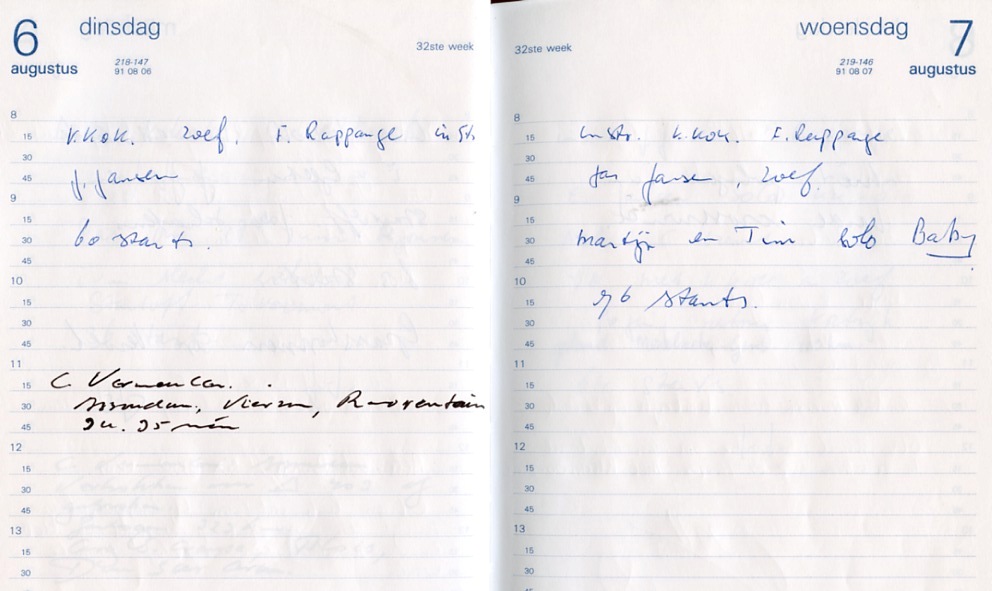 6 dinsdag
augustus
218-147
91 08 06
32ste week
8
15 K.Kok. Zoef. F. Rappange instr
30
45 J. Jansen
9
15
30 60 starts.
45
10
15
30
45
11
15 C.
30
45
12
15
30
45
13
15
30
woensdag 7
augustus
219-146
91 08 07
32ste week
8
15 instr. K.Kok. F. Rappange
30
45 Jan Jansen, Zoef.
9
15
30 Martijn en Tim solo Baby
45
10
15 96 starts.
30
45
11
15
30
45
12
15
30
45
13
15
30